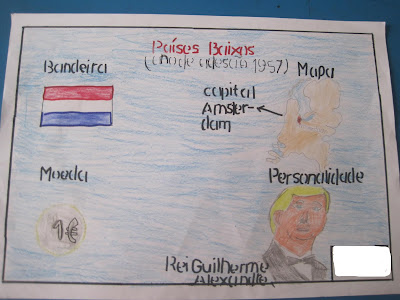 Países Baixos
(ano de adesão 1957)
Bandeira
Mapa
capital
Amster-
dam
Moeda
1€
Personalidade
Rei Guilherme
Alexandre